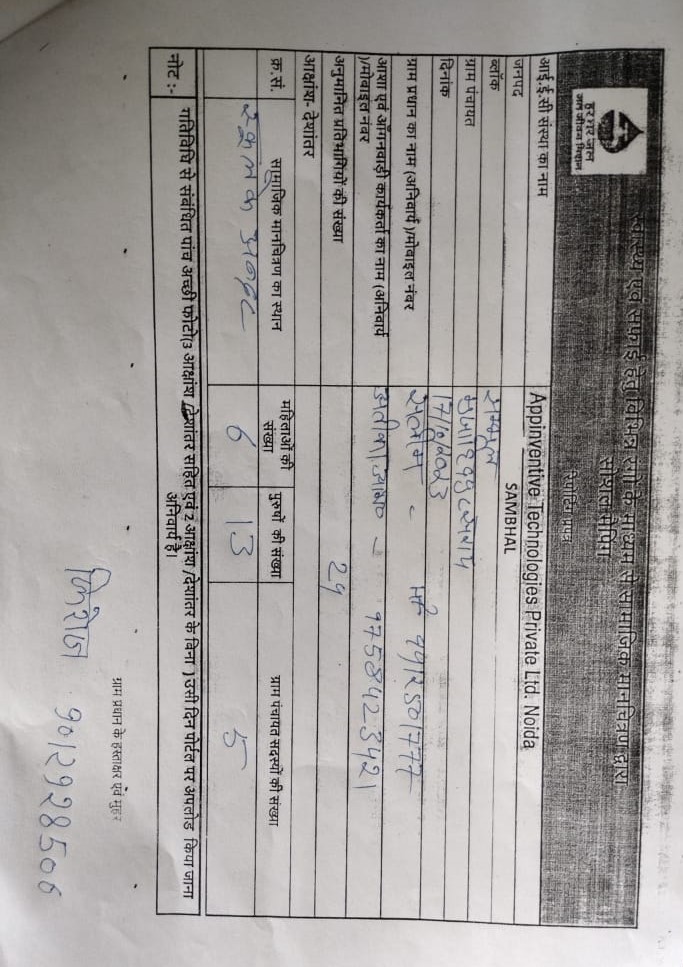 हर घर जल
जल जीवन मिशन
स्वास्थ्य एवं सफाई हेतु विभिन्न स्तरों के माध्यम से सामाजिक मानचित्रण द्वारा
सोशल मैपिंग
रिपोर्टिंग प्रपत्र
आई.ई.सी संस्था का नाम Appinventive Technologies Private Ltd. Noida
जनपद SAMBHAL
ब्लॉक सम्भल
ग्राम पंचायत
दिनांक 17/6/2023
ग्राम प्रधान का नाम (अनिवार्य )/मोबाइल नंबर
आशा एवं आँगनवाड़ी कार्यकर्ता का नाम (अनिवार्य 9758423421
)/मोबाइल नंबर
अनुमानित प्रतिभागियों की संख्या 24
आक्षांश- देशांतर
क्र.सं. सामाजिक मानचित्रण का स्थान महिलाओं की संख्या पुरुषों की संख्या ग्राम पंचायत सदस्यों की संख्या
स्कूल के अन्दर 6 13 5
नोट :- गतिविधि से संबंधित पांच अच्छी फोटो(3 आक्षांश /देशांतर सहित एवं 2 आक्षांश /देशांतर के बिना ) उसी दिन पोर्टल पर अपलोड किया जाना
अनिवार्य है।
ग्राम प्रधान के हस्ताक्षर एवं मुहर
9012928506